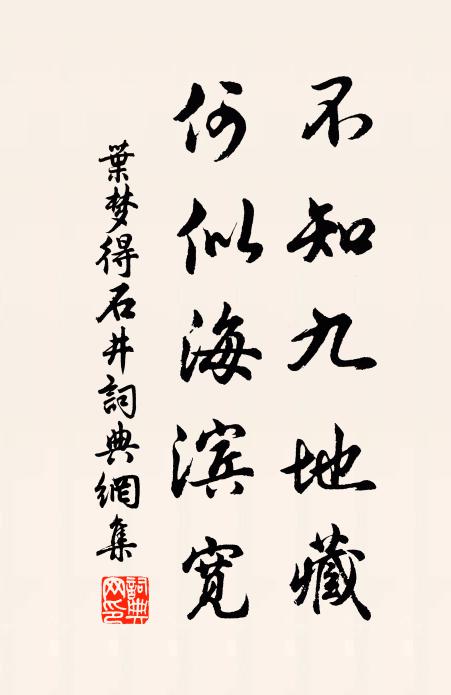 不知九地藏
何似海滨宽
葉梦得石井詞典網集
詞典
网印